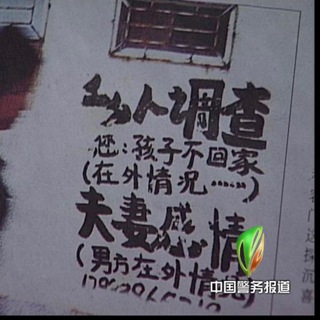 私人调查
您:孩子不回家
(在外情况……)
夫妻感情
(男方在外情况)
中国警务报道